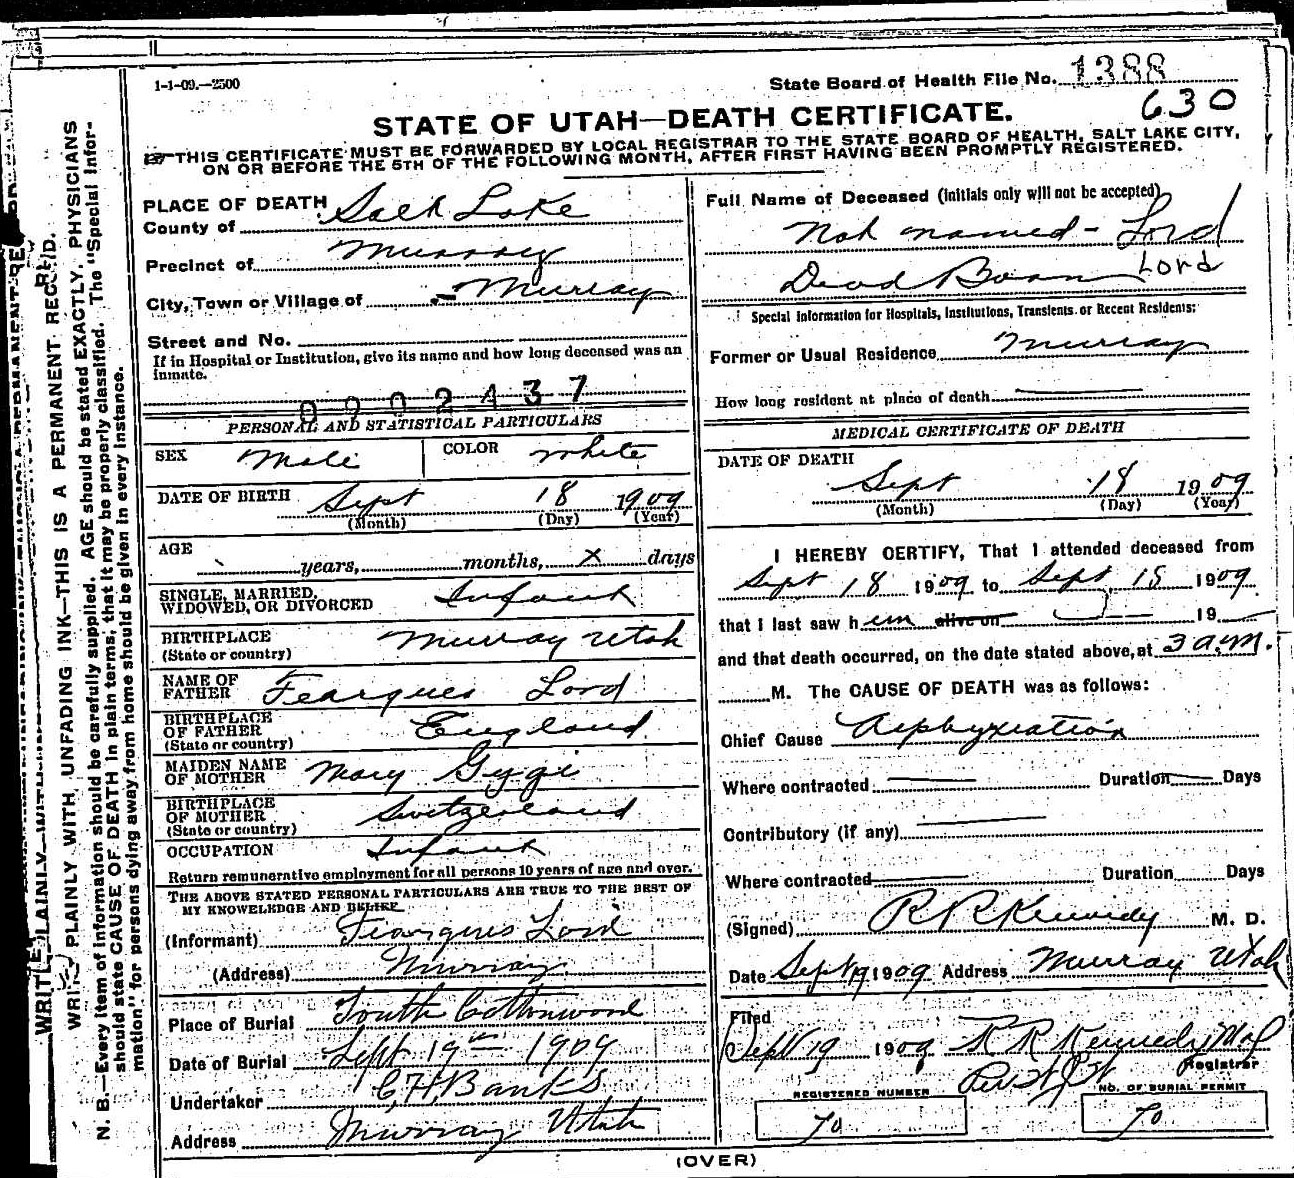 1-1-09.—2500
State Board of Health File No. 1388
630
STATE OF UTAH—DEATH CERTIFICATE.
THIS CERTIFICATE MUST BE FORWARDED BY LOCAL REGISTRAR TO THE STATE BOARD OF HEALTH, SALT LAKE CITY,
ON OR BEFORE THE 5TH OF THE FOLLOWING MONTH, AFTER FIRST HAVING BEEN PROMPTLY REGISTERED.
PLACE OF DEATH
County of Salt Lake
Precinct of Murray
City, Town or Village of Murray
Street and No.
If in Hospital or Institution, give its name and how long deceased was an
inmate.
0902437
PERSONAL AND STATISTICAL PARTICULARS
SEX Male COLOR White
DATE OF BIRTH Sept 18 1909
(Month) (Day) (Year)
AGE years, months, x days
SINGLE, MARRIED,
WIDOWED, OR DIVORCED Infant
BIRTHPLACE
(State or country) Murray Utah
NAME OF
FATHER Feargues Lord
BIRTHPLACE
OF FATHER
(State or country) England
MAIDEN NAME
OF MOTHER Mary Gygi
BIRTHPLACE
OF MOTHER
(State or country) Switzerland
OCCUPATION Infant
Return remunerative employment for all persons 10 years of age and over.
THE ABOVE STATED PERSONAL PARTICULARS ARE TRUE TO THE BEST OF
MY KNOWELEDGE AND BELIEF
(Informant) Fearques Lord
(Address) Murray
Place of Burial South Cottonwood
Date of Burial Sept 19th 1909
Undertaker C, H, Banks
Address Murray Utah
Full Name of Deceased (initials only will not be accepted)
Not named - Lord
Dead Born Lord
Special Information for Hospitals, Institutions, Transients or Recent Residents:
Former or Usual Residence Murray
How long resident at place of death
MEDICAL CERTIFICATE OF DEATH
DATE OF DEATH
Sept 18 1909
(Month) (Day) (Year)
I HEREBY CERTIFY, That I attended deceased from
Sept 18 1909 to Sept 18 1909
that I last saw h im alive on 19
and that death occurred, on the date stated above, at 3 a.m.
M. The CAUSE OF DEATH was as follows:
Chief Cause Asphyxiation
Where contracted Duration Days
Contributory (if any)
Where contracted Duration Days
(Signed) R R Kennedy M. D.
Date Sept 19 1909 Address Murray Utah
Filed
Sept 19 1909 R R Kennedy
Registrar
REGISTERED NUMBER
70
NO. OF BURIAL PERMIT
70
(OVER)
WRITE PLAINLY WITH UNFADING INK—THIS IS A PERMANENT RECORD.
N. B.—Every item of information should be carefully supplied. AGE should be stated EXACTLY. PHYSICIANS
should state CAUSE OF DEATH in plain terms, that it may be properly classified. The "Special Infor-
mation" for persons dying away from home should be given in every instance.